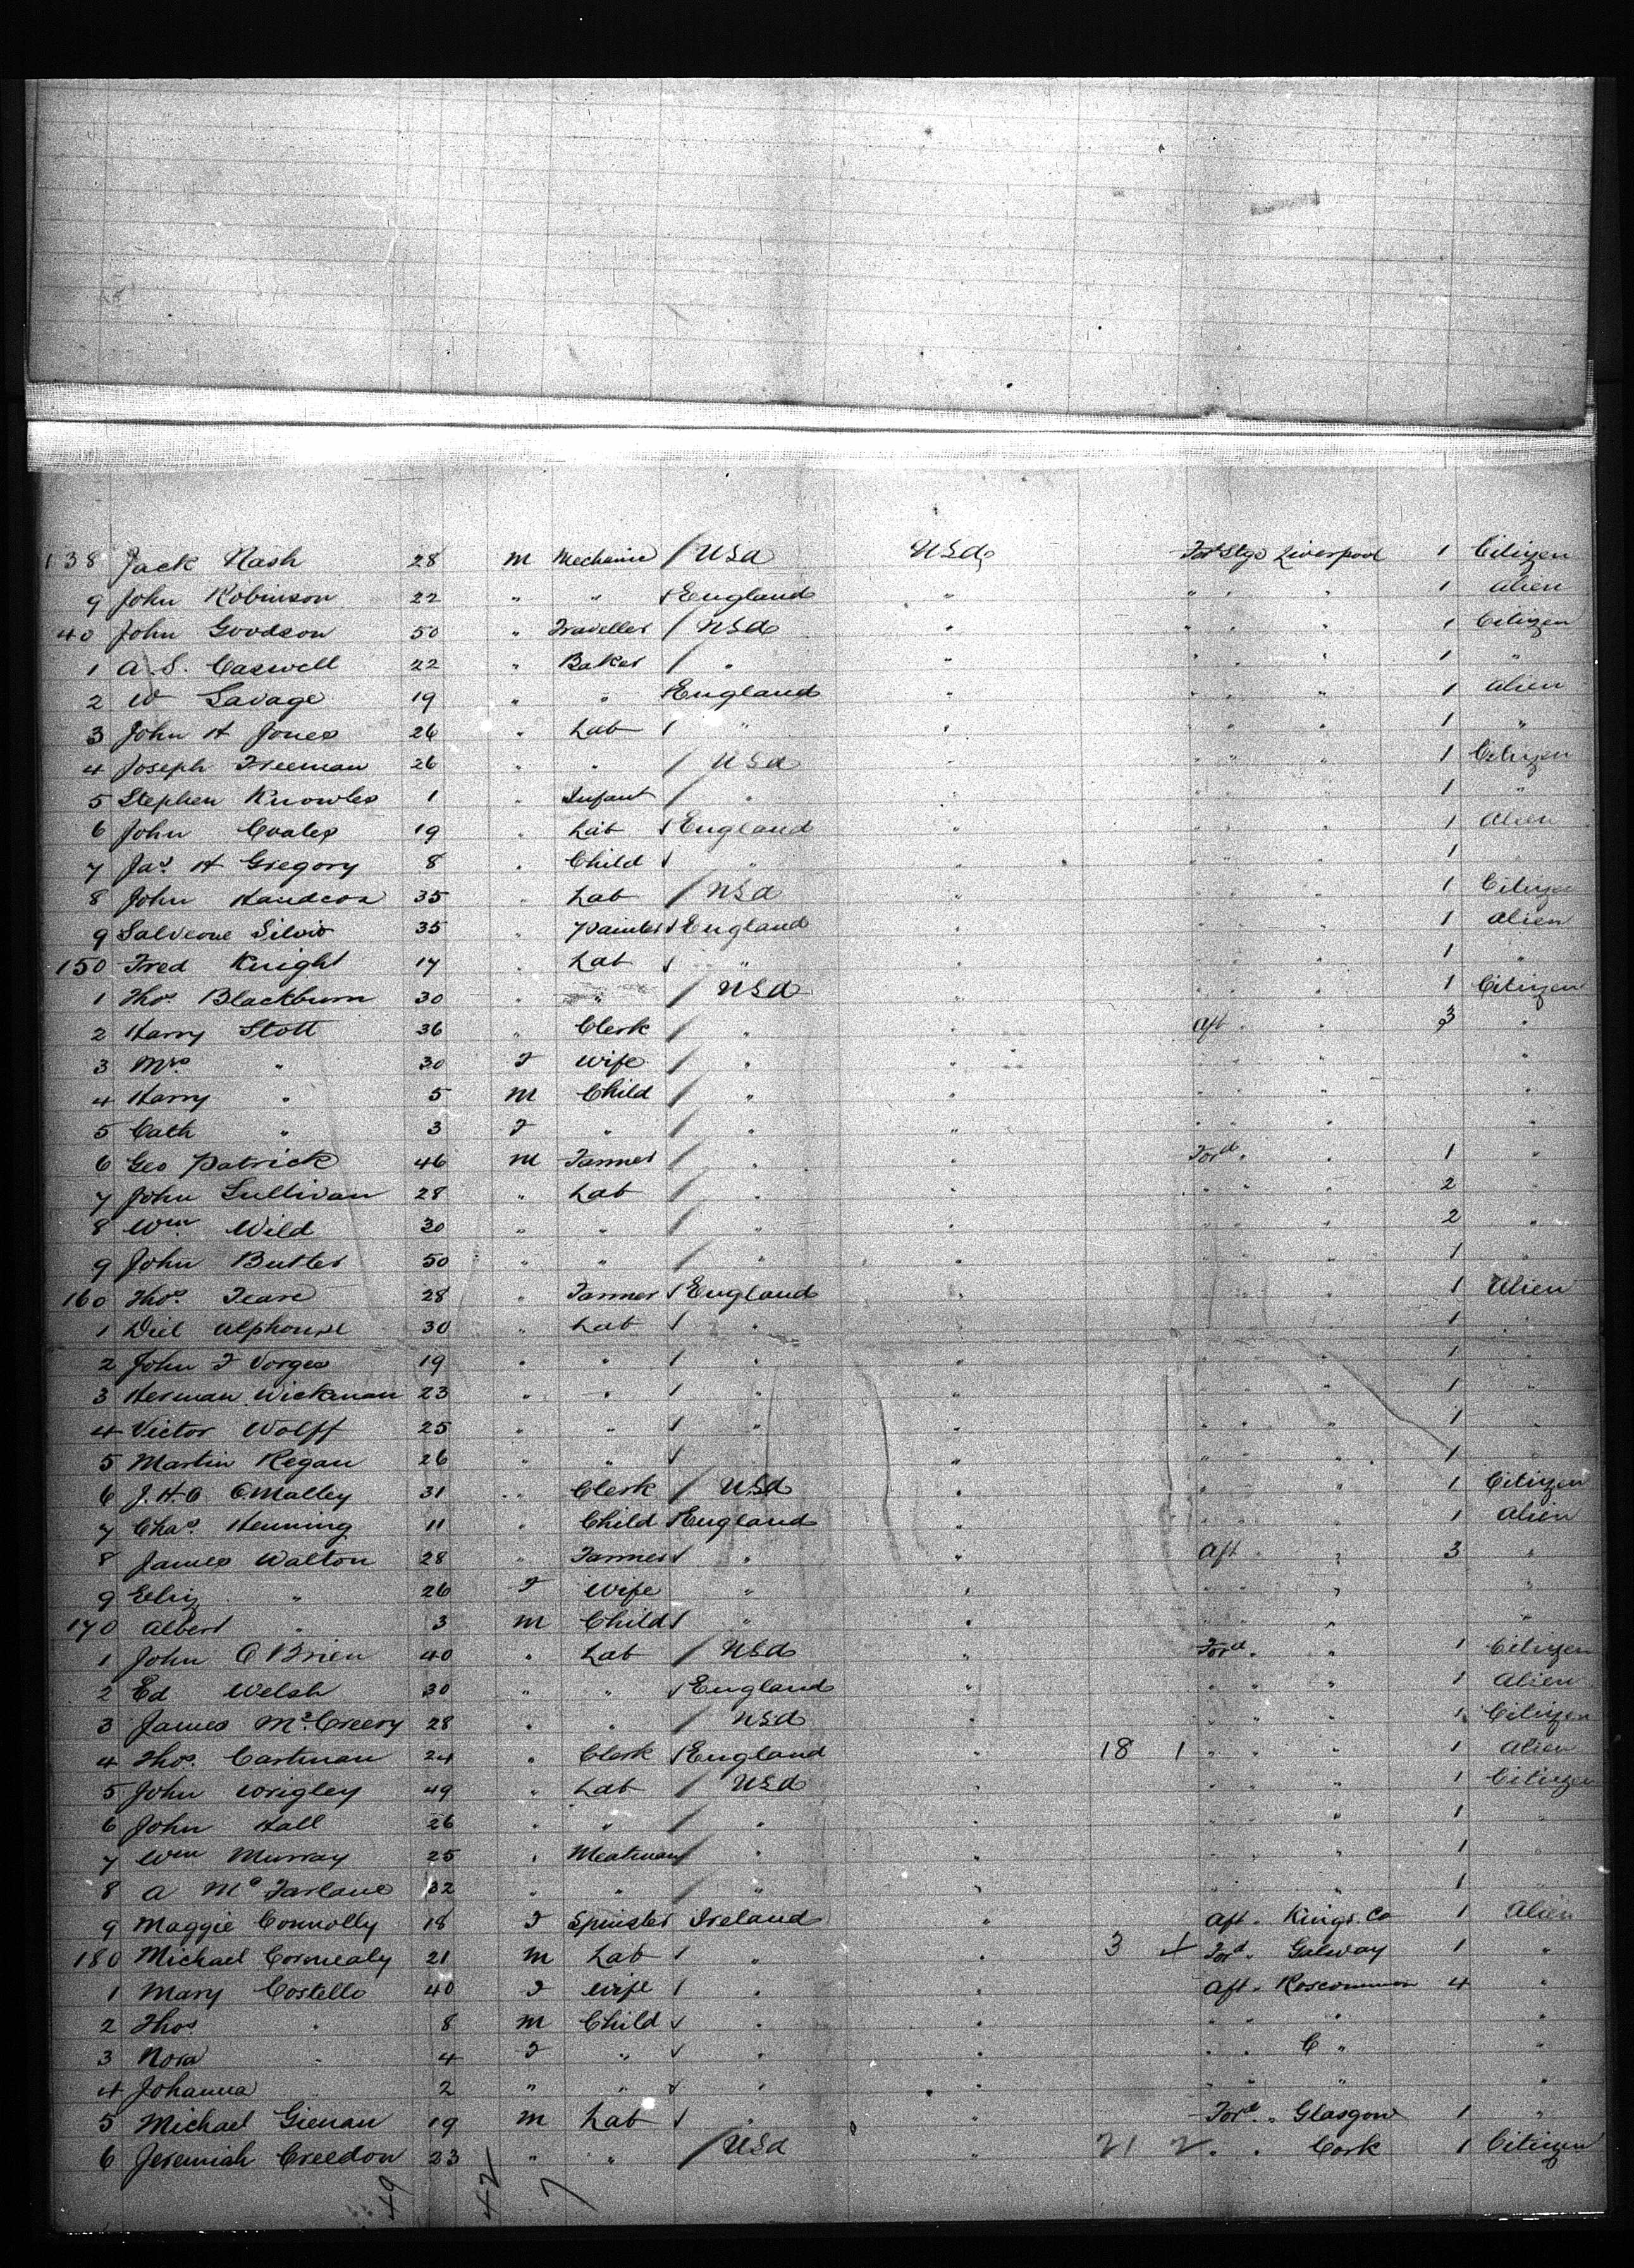 138 Jack Nash 28 M Mechanic / USA USA Ford Stge Liverpool 1 Citizen
9 John Robinson 22 " " England " " " " 1 Alien
40 John Goodson 50 " Traveller / USA " " " " 1 Citizen
1 A.S. Caswell 22 " Baker / " " " " " 1 "
2 W Savage 19 " " England " " " " 1 Alien
3 John H Jones 26 " Lab " " " " " 1 "
4 Joseph Freeman 26 " " / USA " " " " 1 Citizen
5 Stephen Knowles 1 " Infant / " " " " " 1 "
6 John Coales 19 " Lab England " " " " 1 Alien
7 Jas H Gregory 8 " Child " " " " " 1
8 John 35 " Lab / USA " " " " 1 Citizen
9 Salveone Silvio 35 " Painter England " " " " 1 Alien
150 Fred Knight 17 " Lab " " " " " 1 "
1 Thos Blackburn 30 " " / USA " " " " 1 Citizen
2 Harry Stott 36 " Clerk / " " Aft " " 3 "
3 Mrs " 30 F Wife / " " " " " "
4 Harry " 5 M Child / " " " " " "
5 Cath " 3 F " / " " " " " "
6 Geo Patrick 46 M Farmer / " " Ford " " 1 "
7 John Sullivan 28 " Lab / " " " " " 2 "
8 Wm Wild 30 " " / " " " " " 2 "
9 John Butler 50 " " / " " " " " 1 "
160 Thos Teare 28 " Farmer England " " " " 1 Alien
1 Diel Alphonse 30 " Lab " " " " " 1 "
2 John F Vorges 19 " " " " " " " 1 "
3 Herman Wickman 23 " " " " " " " 1 "
4 Victor Wolff 25 " " " " " " " 1 "
5 Martin Regan 26 " " " " " " " 1 "
6 J.H.O O'Malley 31 " Clerk / USA " " " " 1 Citizen
7 Chas Henning 11 " Child England " " " " 1 Alien
8 James Walton 28 " Farmer " " Aft " " 3 "
9 Eliz " 26 F Wife " " " " " "
170 Albert " 3 M Child " " " " " "
1 John O'Brien 40 " Lab / USA " Ford " " 1 Citizen
2 Ed Welsh 30 " " England " " " " 1 Alien
3 James McCreery 28 " " / USA " " " " 1 Citizen
4 Thos Cartman 24 " Clerk England " 18 1 " " " 1 Alien
5 John Wrigley 49 " Lab / USA " " " " 1 Citizen
6 John Hall 26 " " / " " " " " 1 "
7 Wm Murray 25 " Meatman / " " " " " 1 "
8 A McFarlane 32 " " / " " " " " 1 "
9 Maggie Connolly 18 F Spinster Ireland " Aft " Kings Co 1 Alien
180 Michael Cormealy 21 M Lab " " 3 + Ford " Galway 1 "
1 Mary Costello 40 F Wife " " Aft " Roscommon 4 "
2 Thos " 8 M Child " " " " " "
3 Nora " 4 F " " " " " C " "
4 Johanna " 2 " " " " " " " "
5 Michael Gienan 19 M Lab " " Ford " Glasgow 1 "
6 Jeremiah Creedon 23 " " / USA " 21 2 " " Cork 1 Citizen
49 42 7